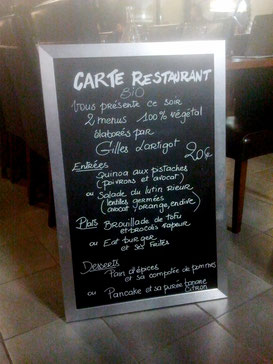 CARTE RESTAURANT
BIO
Vous présente ce soir
2 menus 100% végétal
élaborés par
Gilles d'artigot
20€
Entrées
Quinoa aux pistaches
(poivrons et avocat)
ou Salade du lutin rieur
(lentilles germées
avocat, orange, endive)
Plats Brouillade de tofu
et brocolis vapeur
ou Eat burger
et ses frites
Desserts
Pain d'épices
et sa compotée de pommes
ou Pancake et sa purée banane
citron